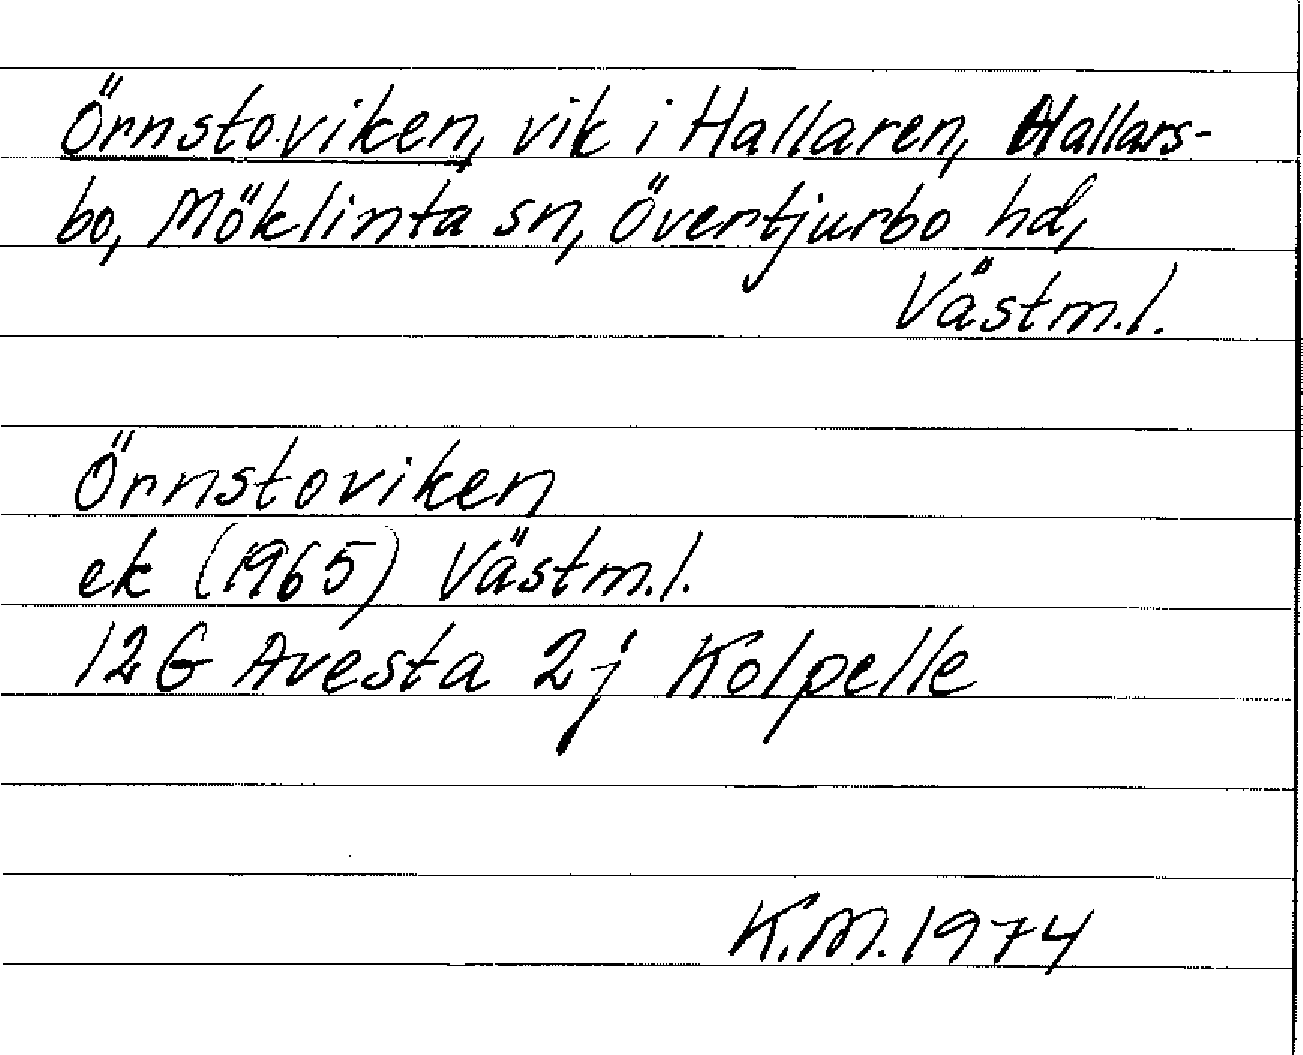 Örnstoviken, vik i Hallaren, Hallars-
bo, Möklinta sn, Övertjurbo hd,
Västm.l.
Örnstoviken
ek (1965) Västm.l.
12G Avesta 2j Kolpelle
K.M. 1974